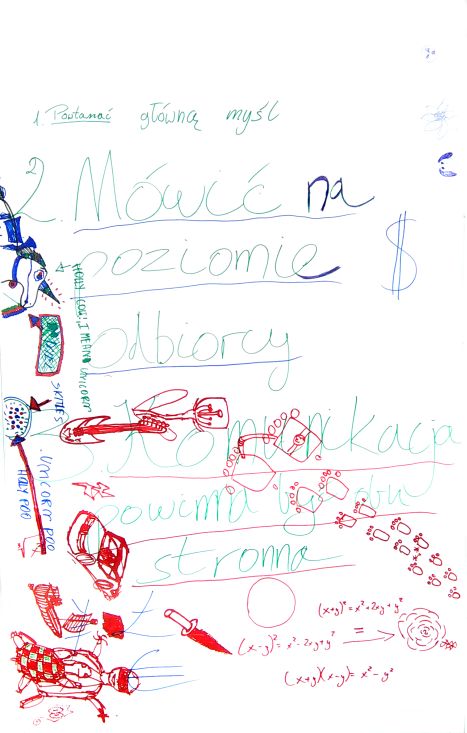 1. Powtarzać główną myśl
2. Mówić na
poziomie
odbiorcy
3. Komunikacja
powinna być dwu
stronna
$
HOLLY COW! I MEAN UNICORN
SKITTLES
UNICORN POO
HOLY POO
(x+y)² = x² + 2xy + y²
(x-y)² = x² - 2xy + y²
=
(x+y)(x-y) = x² - y²